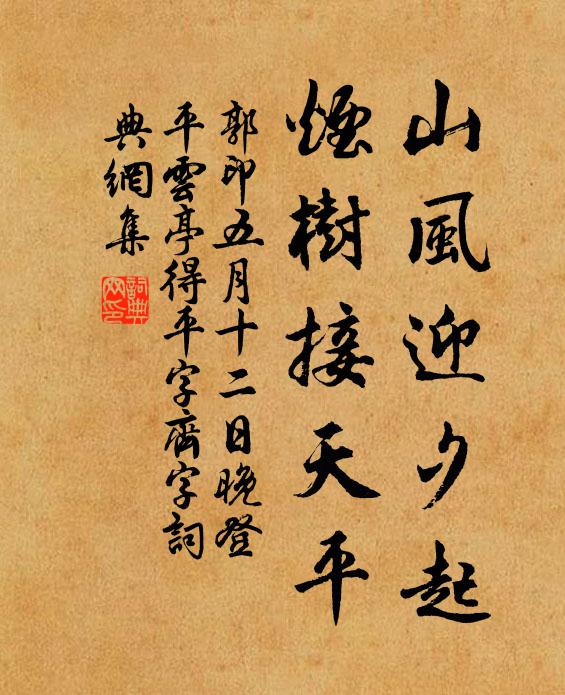 山風迎夕起
煙樹接天平
郭印五月十二日晚登
平雲亭得平字齊字詞
典網集
詞典网印